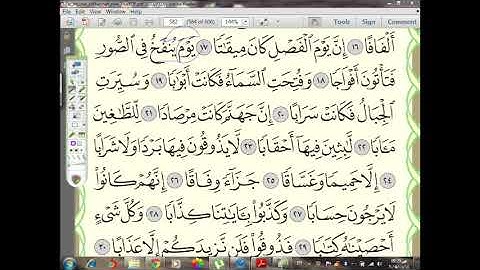 582 (584 of 606) 144%
أَلْفَافًا ١٦ إِنَّ يَوْمَ ٱلْفَصْلِ كَانَ مِيقَٰتًا ١٧ يَوْمَ يُنفَخُ فِى ٱلصُّورِ
فَتَأْتُونَ أَفْوَاجًا ١٨ وَفُتِحَتِ ٱلسَّمَآءُ فَكَانَتْ أَبْوَٰبًا ١٩ وَسُيِّرَتِ
ٱلْجِبَالُ فَكَانَتْ سَرَابًا ٢٠ إِنَّ جَهَنَّمَ كَانَتْ مِرْصَادًا ٢١ لِّلطَّٰغِينَ
مَـَٔابًا ٢٢ لَّٰبِثِينَ فِيهَآ أَحْقَابًا ٢٣ لَّا يَذُوقُونَ فِيهَا بَرْدًا وَلَا شَرَابًا
٢٤ إِلَّا حَمِيمًا وَغَسَّاقًا ٢٥ جَزَآءً وِفَاقًا ٢٦ إِنَّهُمْ كَانُوا۟
لَا يَرْجُونَ حِسَابًا ٢٧ وَكَذَّبُوا۟ بِـَٔايَٰتِنَا كِذَّابًا ٢٨ وَكُلَّ شَىْءٍ
أَحْصَيْنَٰهُ كِتَٰبًا ٢٩ فَذُوقُوا۟ فَلَن نَّزِيدَكُمْ إِلَّا عَذَابًا ٣٠